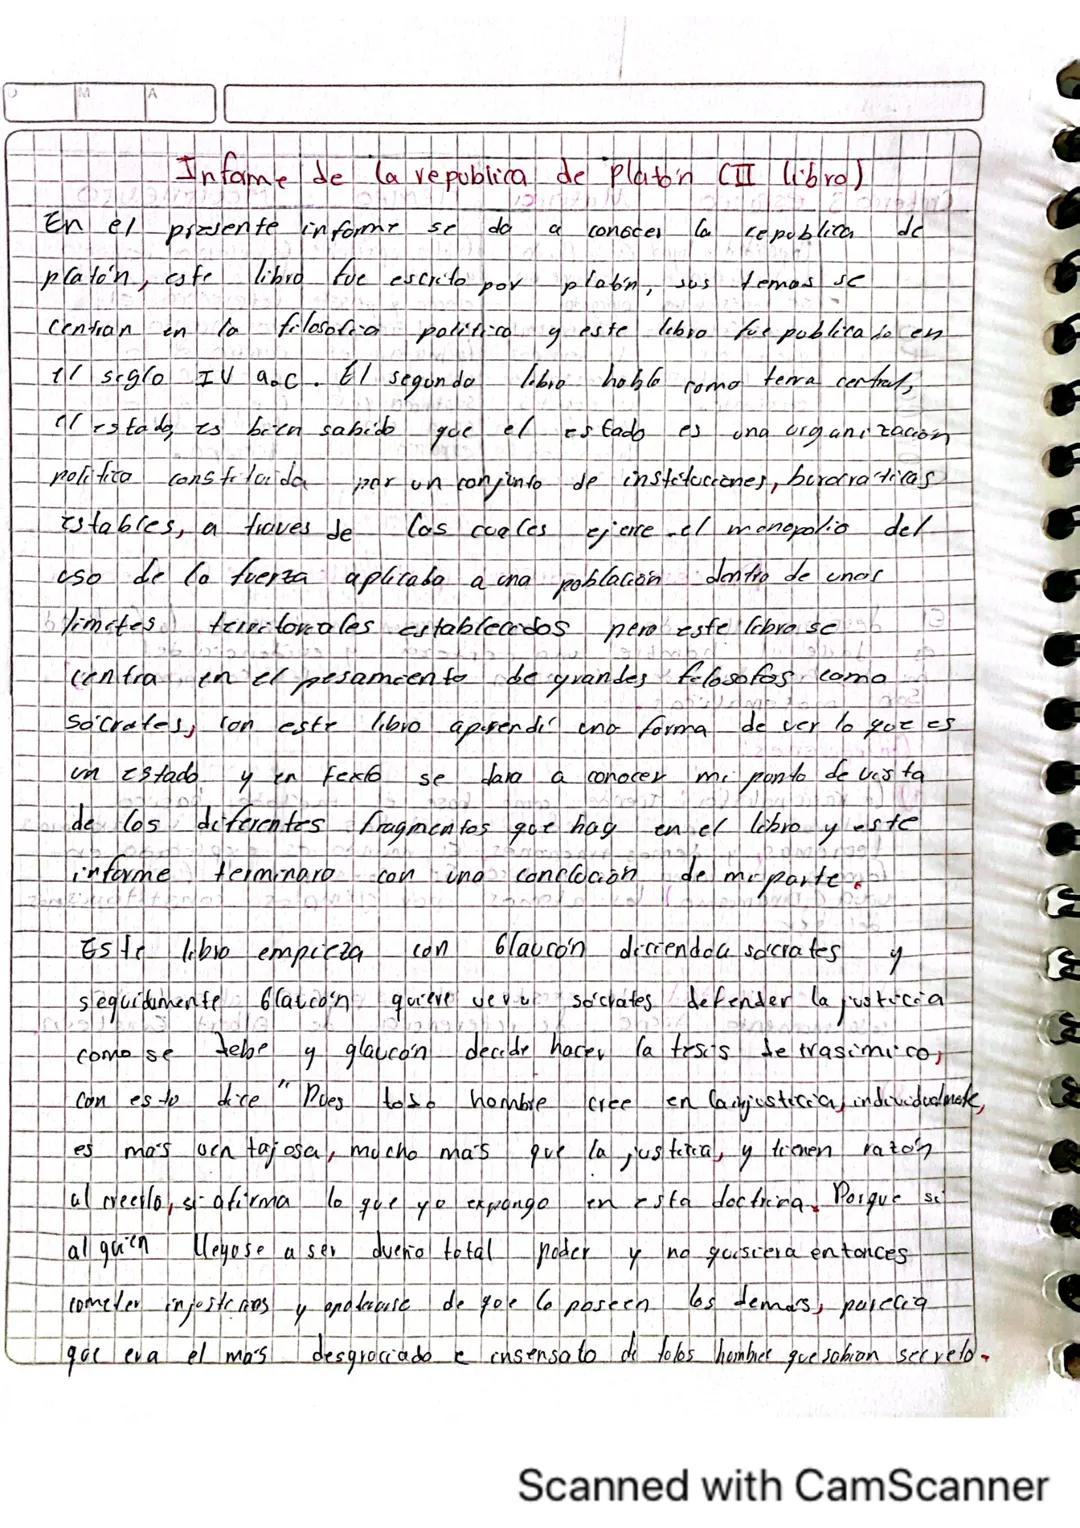 D M A
Informe de la republica de Platón (II libro)
En el presente informe se da a conocer la republica de
platón, este libro fue escrito por platón, sus temas se
centran en la filosofia politica y este libro fue publicado en
el siglo IV a.C. El segundo libro habla como tema central,
el estado, es bien sabido que el estado es una organización
politica constituida por un conjunto de instituciones, burocraticas
estables, a traves de las cuales ejerce el monopolio del
uso de la fuerza aplicada a una población dentro de unos
limites territoriales establecidos pero este libro se
centra en el pesamiento de grandes filosofos como
sócrates, con este libro aprendí una forma de ver lo que es
un estado y en texto se dara a conocer mi punto de vista
de los diferentes fragmentos que hay en el libro y este
informe terminara con una conclución de mi parte.
Este libro empieza con Glaucón diciendole sócrates y
seguidamente Glaucón quiere ver a sócrates defender la justicia
como se debe y glaucón decide hacer la tesis de trasimico,
con esto dice "Pues todo hombre cree en la injusticia, individualmente,
es más ventajosa, mucho más que la justicia, y tienen razón
al creerlo, si afirma lo que yo expongo en esta doctrina. Porque si
alguien llegase a ser dueño total poder y no quisiera entonces
cometer injusticias y apoderarse de que lo poseen los demas, pareciq
que era el más desgraciado e insensato de todos hombre que sabian secreto.
Scanned with CamScanner